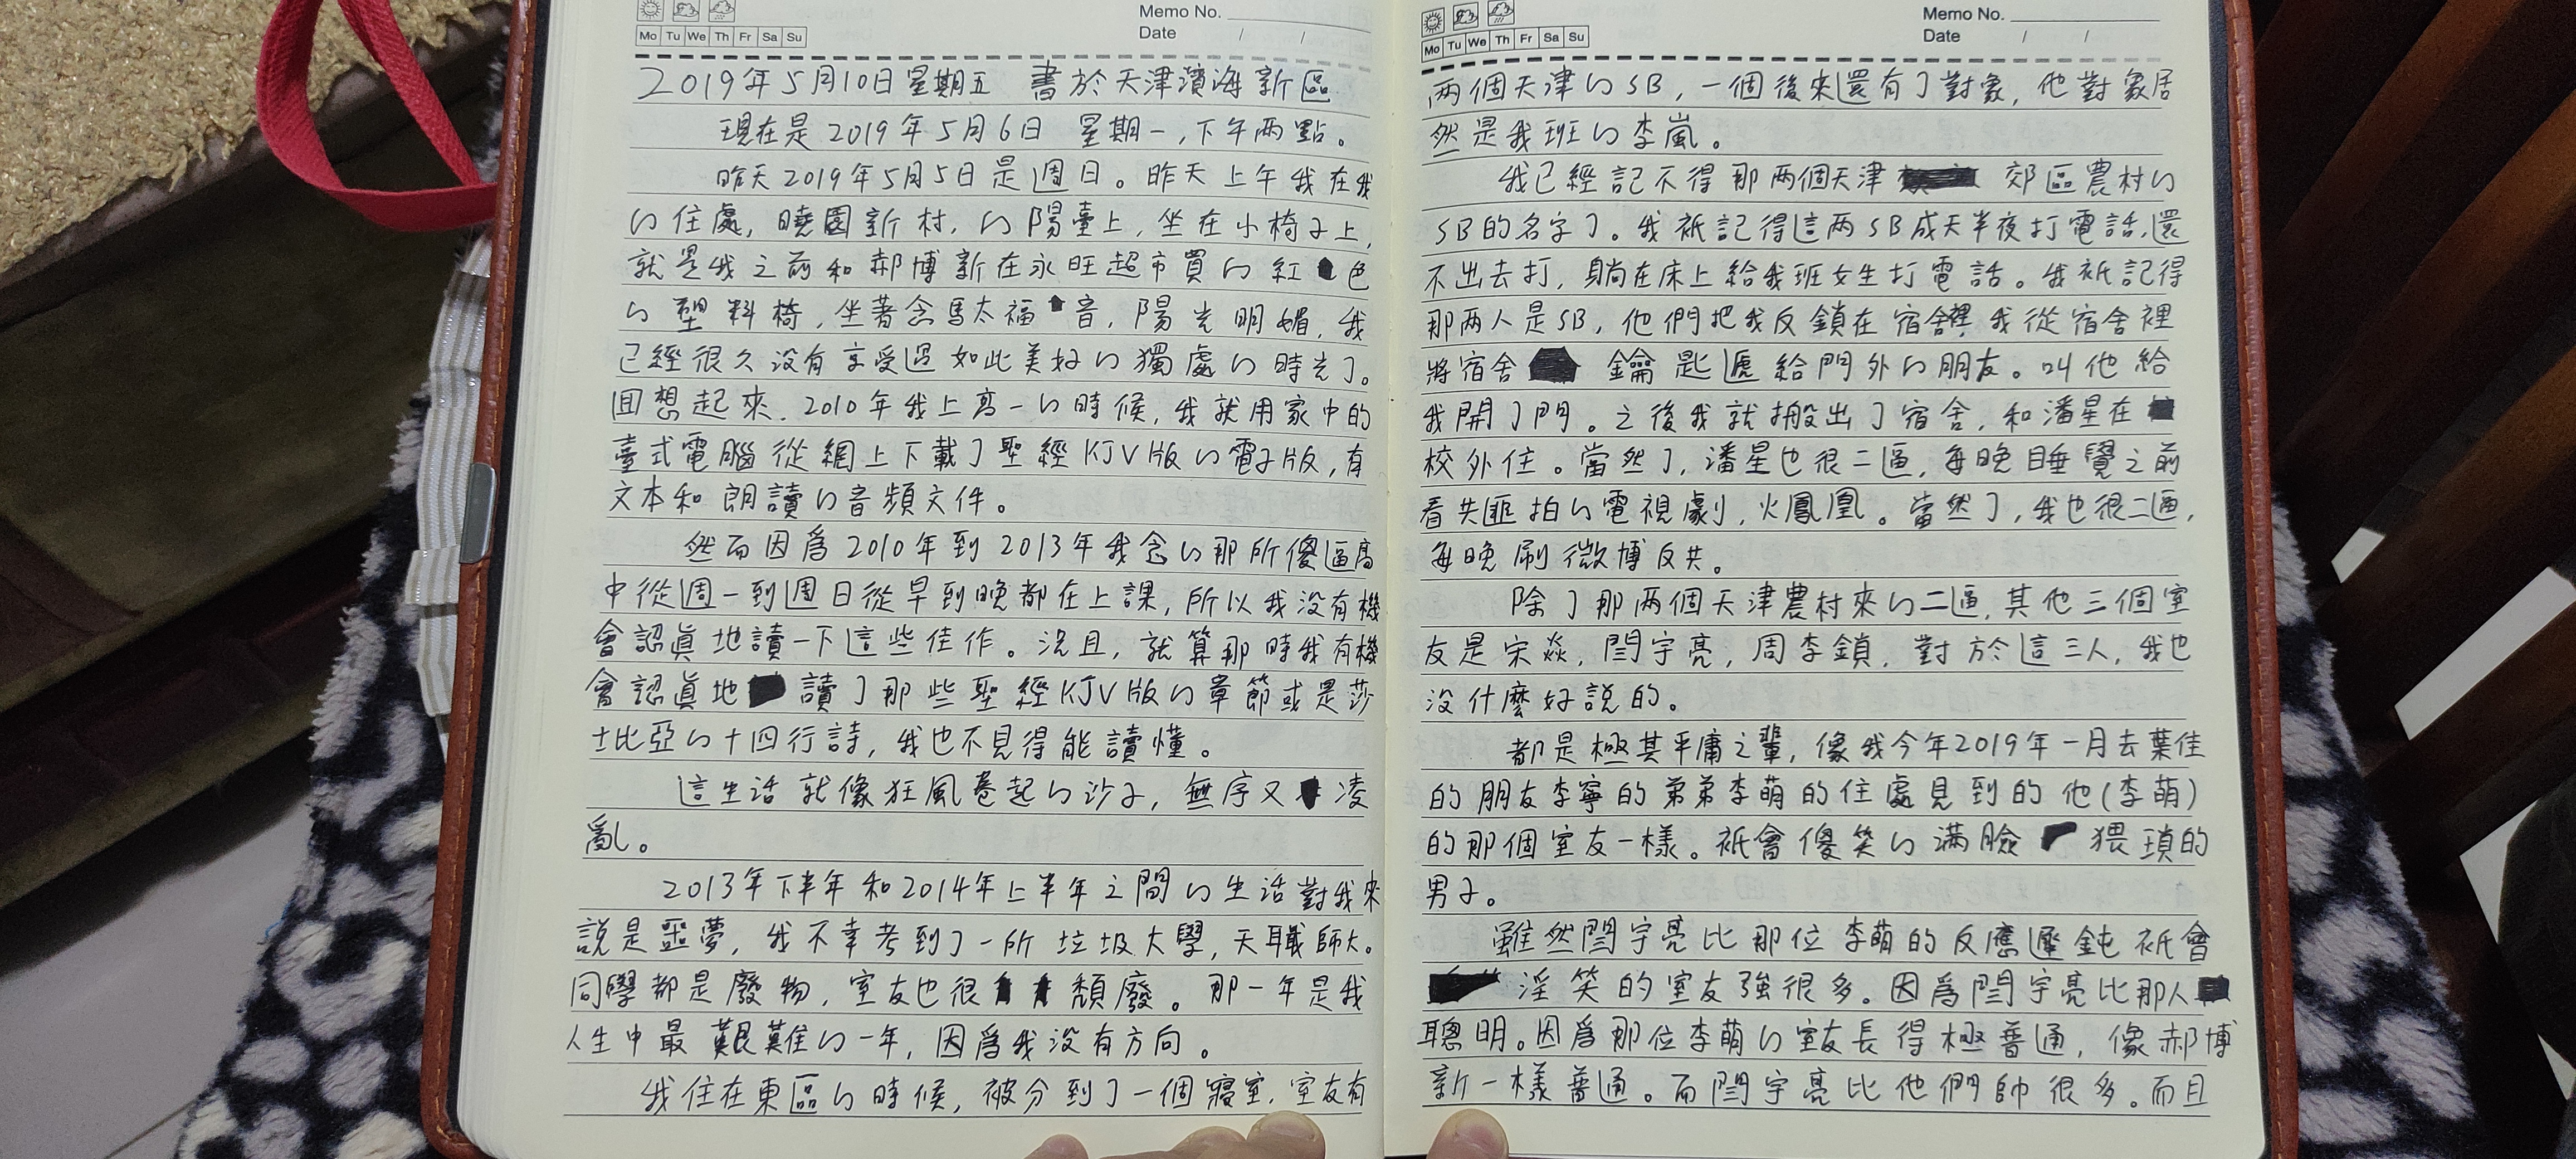 Mo Tu We Th Fr Sa Su
Memo No.
Date / /
2019年5月10日星期五 書於天津濱海新區
現在是2019年5月6日 星期一,下午兩點。
昨天2019年5月5日是週日。昨天上午我在我
的住處,曉園新村,的陽臺上,坐在小椅子上,
就是我之前和郝博新在永旺超市買的紅色
的塑料椅,坐著念馬太福音,陽光明媚,我
已經很久沒有享受過如此美好的獨處的時光了。
回想起來,2010年我上高一的時候,我就用家中的
臺式電腦從網上下載了聖經KJV版的電子版,有
文本和朗讀的音頻文件。
然而因爲2010年到2013年我念的那所傻逼高
中從週一到週日從早到晚都在上課,所以我沒有機
會認眞地讀一下這些佳作。況且,就算那時我有機
會認眞地讀了那些聖經KJV版的章節或是莎
士比亞的十四行詩,我也不見得能讀懂。
這生活就像狂風卷起的沙子,無序又凌
亂。
2013年下半年和2014年上半年之間的生活對我來
説是噩夢,我不幸考到了一所垃圾大學,天職師大。
同學都是廢物,室友也很頹廢。那一年是我
人生中最艱難的一年,因爲我沒有方向。
我住在東區的時候,被分到了一個寢室,室友有
Mo Tu We Th Fr Sa Su
Memo No.
Date / /
兩個天津的SB,一個後來還有了對象,他對象居
然是我班的李嵐。
我已經記不得那兩個天津郊區農村的
SB的名字了。我衹記得這兩SB成天半夜打電話,還
不出去打,躺在床上給我班女生打電話。我衹記得
那兩人是SB,他們把我反鎖在宿舍裡,我從宿舍裡
將宿舍鑰匙遞給門外的朋友。叫他給
我開了門。之後我就搬出了宿舍,和潘星在
校外住。當然了,潘星也很二逼,每晚睡覺之前
看共匪拍的電視劇,火鳳凰。當然了,我也很二逼,
每晚刷微博反共。
除了那兩個天津農村來的二逼,其他三個室
友是宋焱,閆宇亮,周李鎖,對於這三人,我也
沒什麼好説的。
都是極其平庸之輩,像我今年2019年一月去葉佳
的朋友李寧的弟弟李萌的住處見到的他(李萌)
的那個室友一樣。衹會傻笑的滿臉猥瑣的
男子。
雖然閆宇亮比那位李萌的反應遲鈍衹會
淫笑的室友強很多。因爲閆宇亮比那人
聰明。因爲那位李萌的室友長得極普通,像郝博
新一樣普通。而閆宇亮比他們帥很多。而且